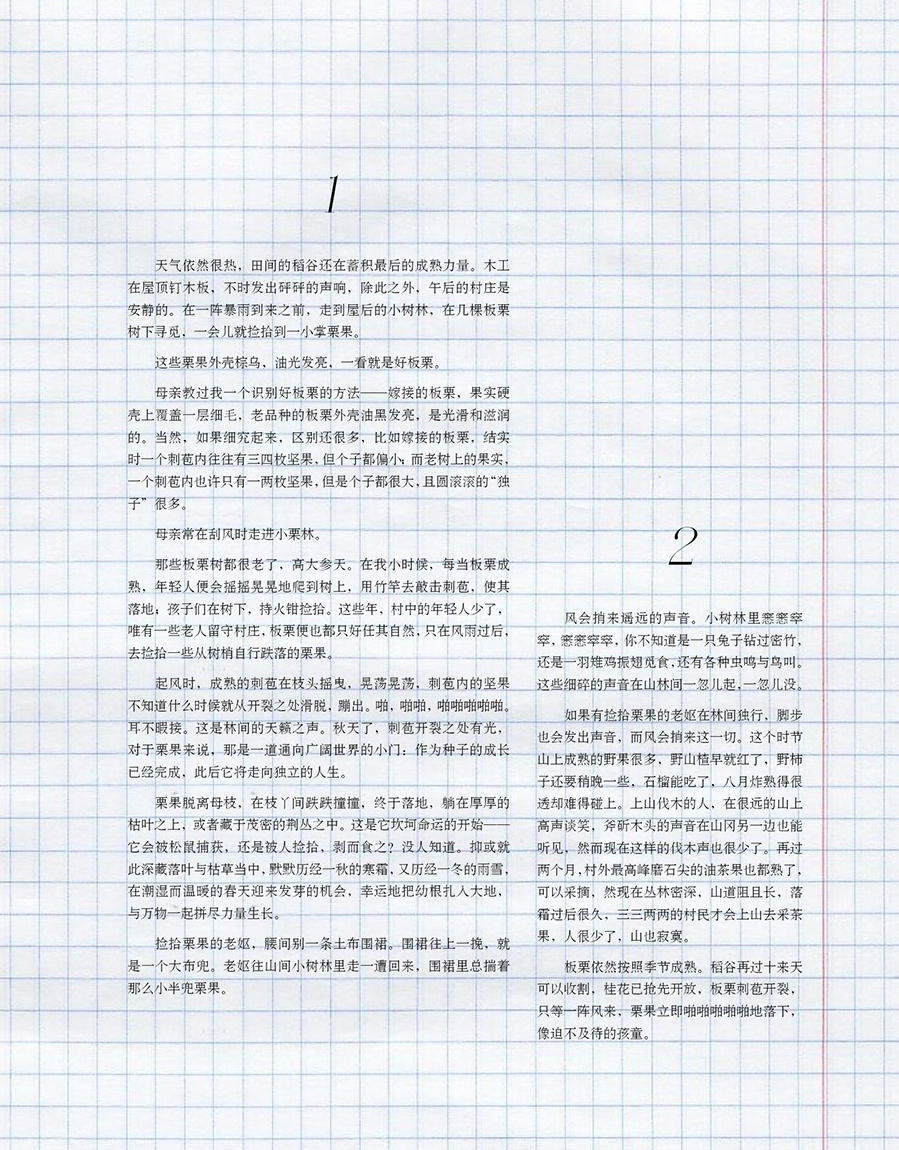 1
天气依然很热，田间的稻谷还在蓄积最后的成熟力量。木工
在屋顶钉木板，不时发出砰砰的声响，除此之外，午后的村庄是
安静的。在一阵暴雨到来之前，走到屋后的小树林，在几棵板栗
树下寻觅，一会儿就捡拾到一小掌栗果。
这些栗果外壳棕乌，油光发亮，一看就是好板栗。
母亲教过我一个识别好板栗的方法——嫁接的板栗，果实硬
壳上覆盖一层细毛，老品种的板栗外壳油黑发亮，是光滑和滋润
的。当然，如果细究起来，区别还很多，比如嫁接的板栗，结实
时一个刺苞内往往有三四枚坚果，但个子都偏小；而老树上的果实，
一个刺苞内也许只有一两枚坚果，但是个子都很大，且圆滚滚的“独
子”很多。
母亲常在刮风时走进小栗林。
那些板栗树都很老了，高大参天。在我小时候，每当板栗成
熟，年轻人便会摇摇晃晃地爬到树上，用竹竿去敲击刺苞，使其
落地；孩子们在树下，持火钳捡拾。这些年，村中的年轻人少了，
唯有一些老人留守村庄，板栗便也都只好任其自然，只在风雨过后，
去捡拾一些从树梢自行跌落的栗果。
起风时，成熟的刺苞在枝头摇曳，晃荡晃荡，刺苞内的坚果
不知道什么时候就从开裂之处滑脱，蹦出。啪，啪啪，啪啪啪啪啪。
耳不暇接。这是林间的天籁之声。秋天了，刺苞开裂之处有光，
对于栗果来说，那是一道通向广阔世界的小门；作为种子的成长
已经完成，此后它将走向独立的人生。
栗果脱离母枝，在枝丫间跌跌撞撞，终于落地，躺在厚厚的
枯叶之上，或者藏于茂密的荆丛之中。这是它坎坷命运的开始——
它会被松鼠捕获，还是被人捡拾，剥而食之？没人知道。抑或就
此深藏落叶与枯草当中，默默历经一秋的寒霜，又历经一冬的雨雪，
在潮湿而温暖的春天迎来发芽的机会，幸运地把幼根扎入大地，
与万物一起拼尽力量生长。
捡拾栗果的老妪，腰间别一条土布围裙。围裙往上一挽，就
是一个大布兜。老妪往山间小树林里走一遭回来，围裙里总揣着
那么小半兜栗果。
2
风会捎来遥远的声音。小树林里窸窸窣
窣，窸窸窣窣，你不知道是一只兔子钻过密竹，
还是一羽雉鸡振翅觅食，还有各种虫鸣与鸟叫。
这些细碎的声音在山林间一忽儿起，一忽儿没。
如果有捡拾栗果的老妪在林间独行，脚步
也会发出声音，而风会捎来这一切。这个时节
山上成熟的野果很多，野山楂早就红了，野柿
子还要稍晚一些，石榴能吃了，八月炸熟得很
透却难得碰上。上山伐木的人，在很远的山上
高声谈笑，斧斫木头的声音在山冈另一边也能
听见，然而现在这样的伐木声也很少了。再过
两个月，村外最高峰磨石尖的油茶果也都熟了，
可以采摘，然现在丛林密深，山道阻且长，落
霜过后很久，三三两两的村民才会上山去采茶
果，人很少了，山也寂寞。
板栗依然按照季节成熟。稻谷再过十来天
可以收割，桂花已抢先开放，板栗刺苞开裂，
只等一阵风来，栗果立即啪啪啪啪啪地落下，
像迫不及待的孩童。